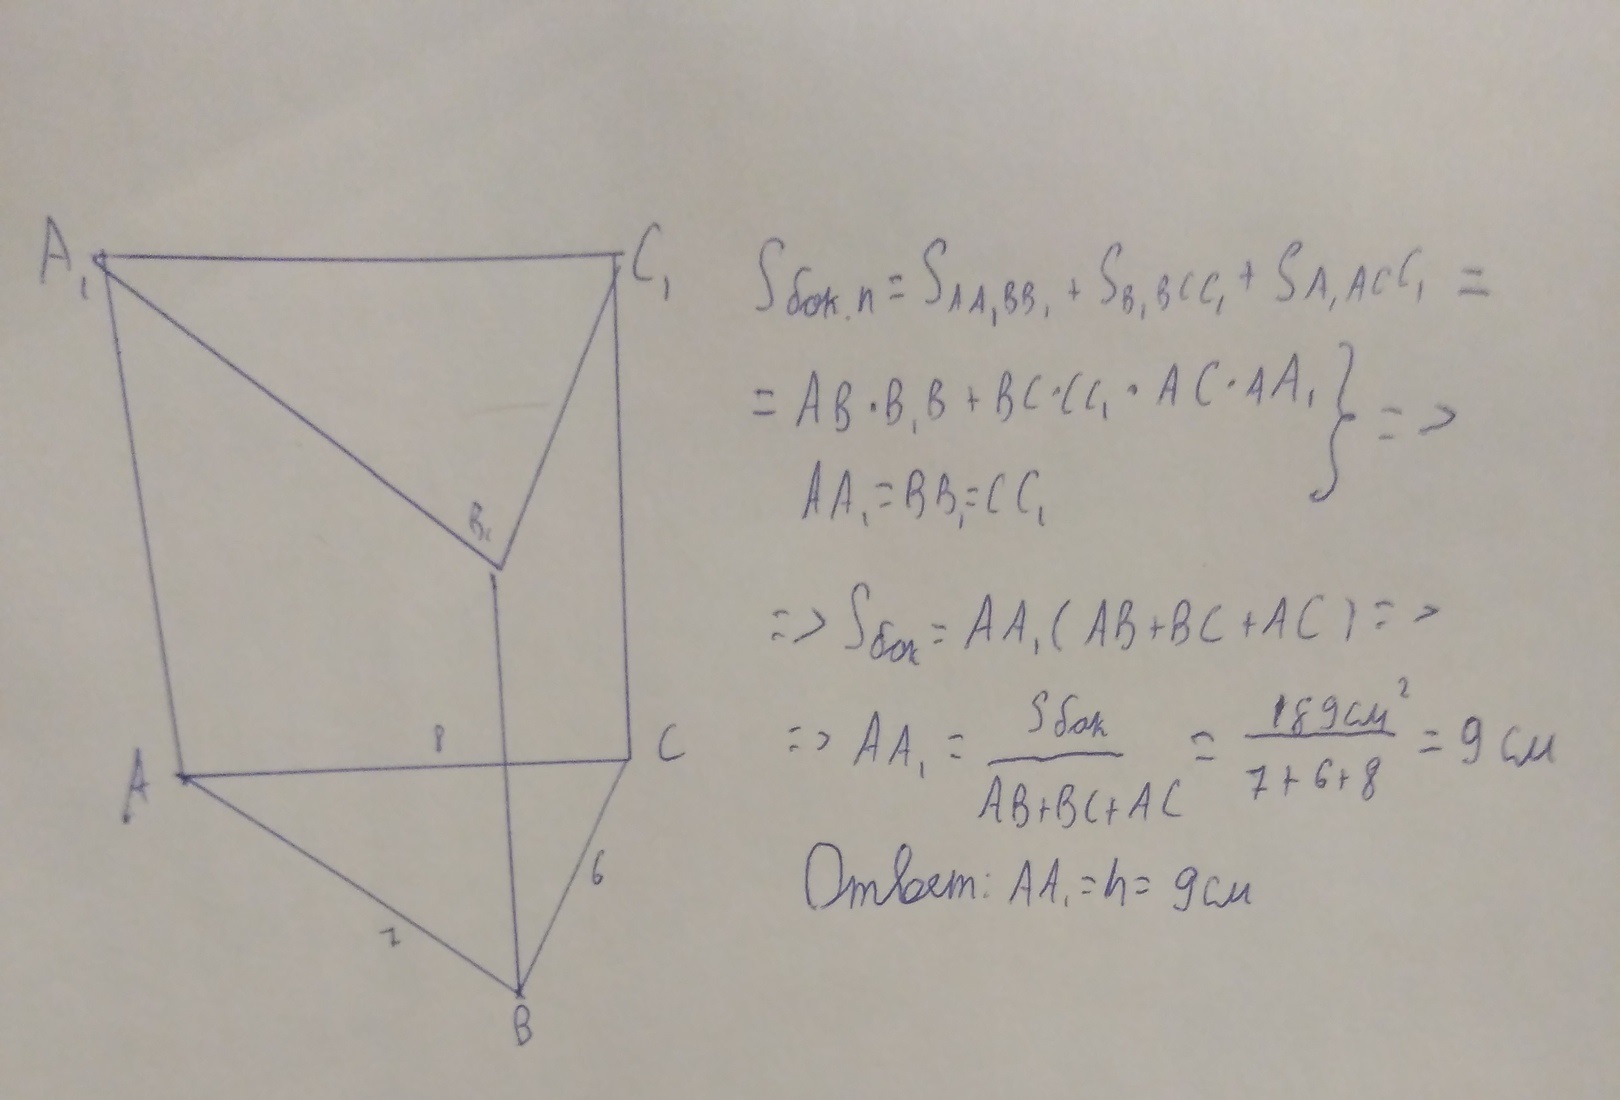 A₁
C₁
B₁
8
A
C
6
7
B
Sбок.п = SAA₁BB₁ + SB₁BCC₁ + SA₁ACC₁ =
= AB·B₁B + BC·CC₁ · AC·AA₁ } =>
AA₁=BB₁=CC₁
=> Sбок = AA₁(AB+BC+AC) =>
=> AA₁ = Sбок / AB+BC+AC = 189см² / 7+6+8 = 9 см
Ответ: AA₁=h= 9см